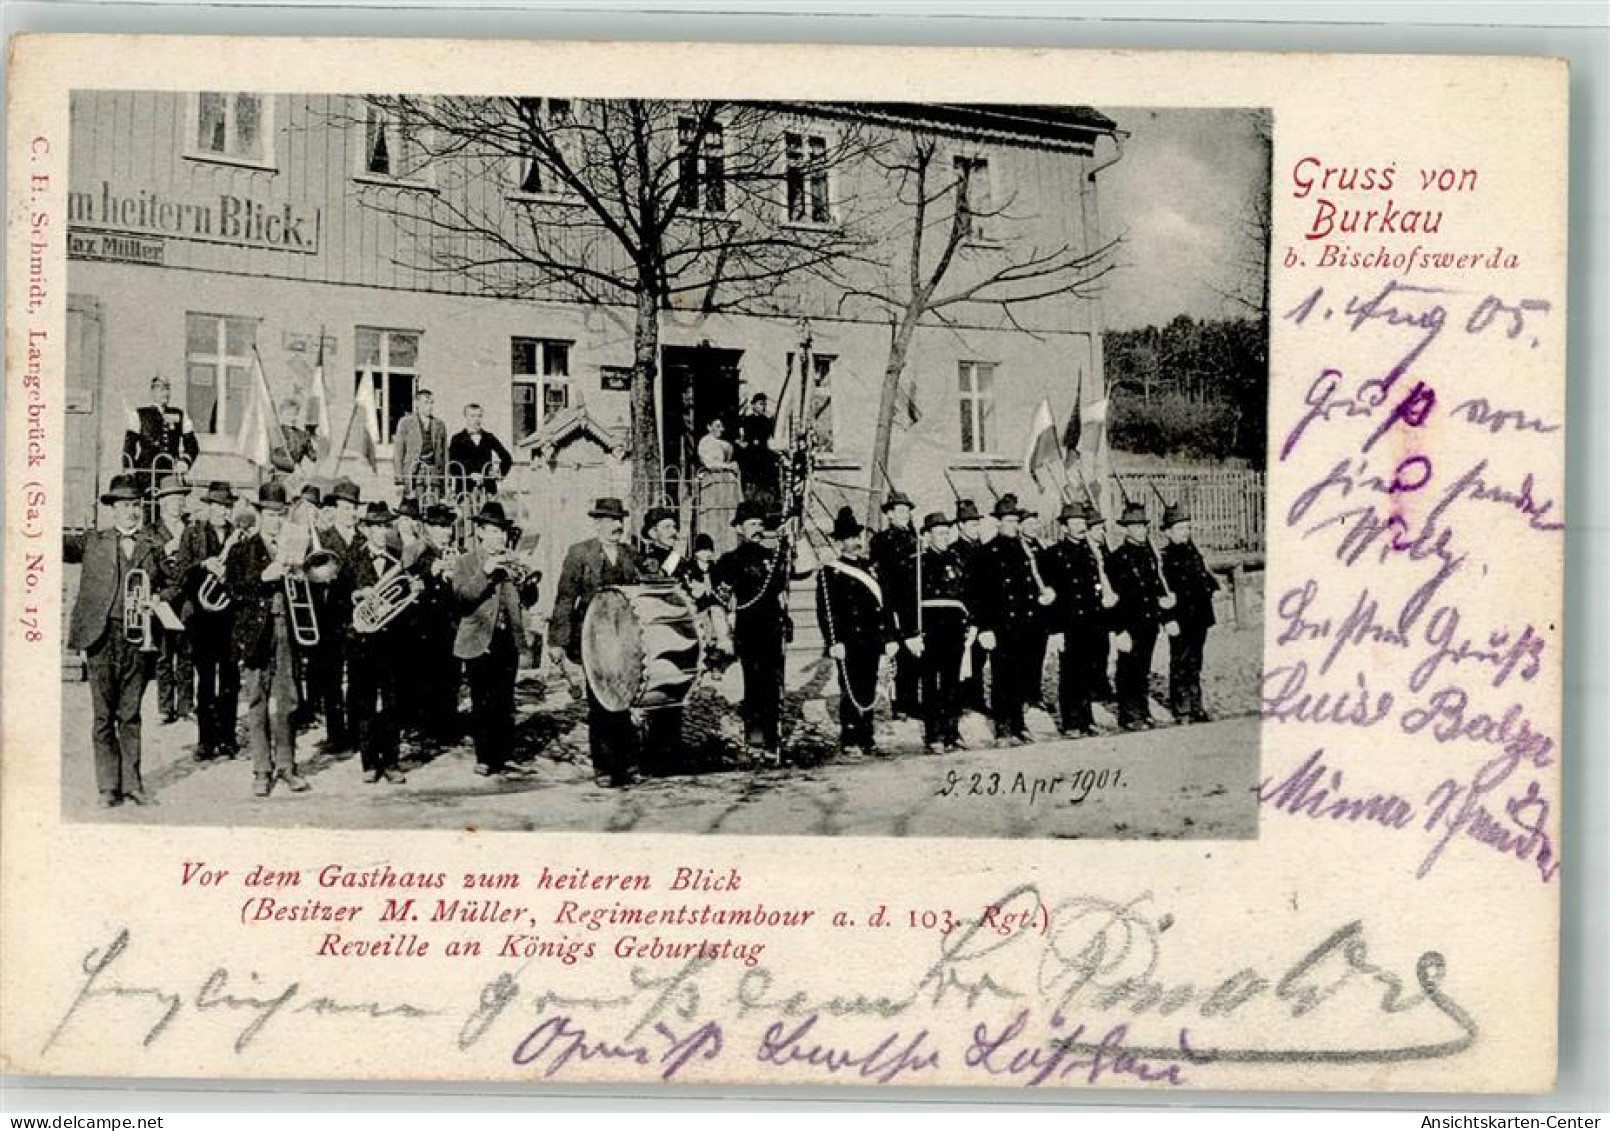 C. H. Schmidt, Langebrück (Sa.) No. 178
m heitern Blick.
Max Müller
D. 23. Apr 1901.
Gruss von
Burkau
b. Bischofswerda
1. Aug 05.
Gruß von
hier sendet
Willy.
Besten Gruß
Luise
Minna
Vor dem Gasthaus zum heiteren Blick
(Besitzer M. Müller, Regimentstambour a. d. 103. Rgt.)
Reveille an Königs Geburtstag
Herzlichen Gruß
Gruß
Ansichtskarten-Center